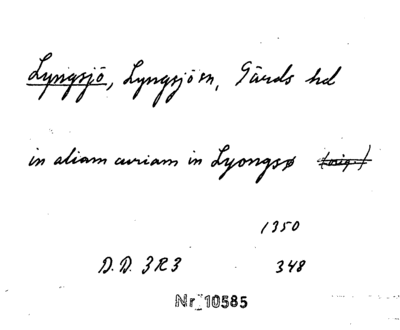 Lyngsjö, Lyngsjö sn, Gärds hd
in aliam curiam in Lyongsø
1350
D.D. 3R3 348
Nr 10585